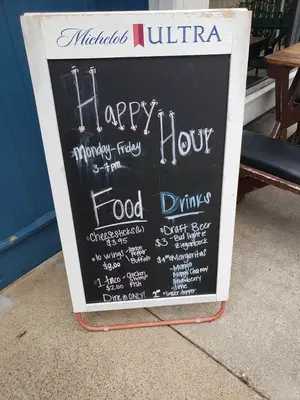 Michelob ULTRA
Happy
Hour
Monday-Friday
3-7pm
Food
Cheesesticks (6)
$3.95
10 wings
Lemon
Pepper
Buffalo
$8.00
1-taco
Chicken
Shrimp
Fish
$2.00
Dine in ONLY!
Drinks
Draft Beer
$3
Bud light &
Ziegenbock
Margaritas
Mango
Strawberry
Lime